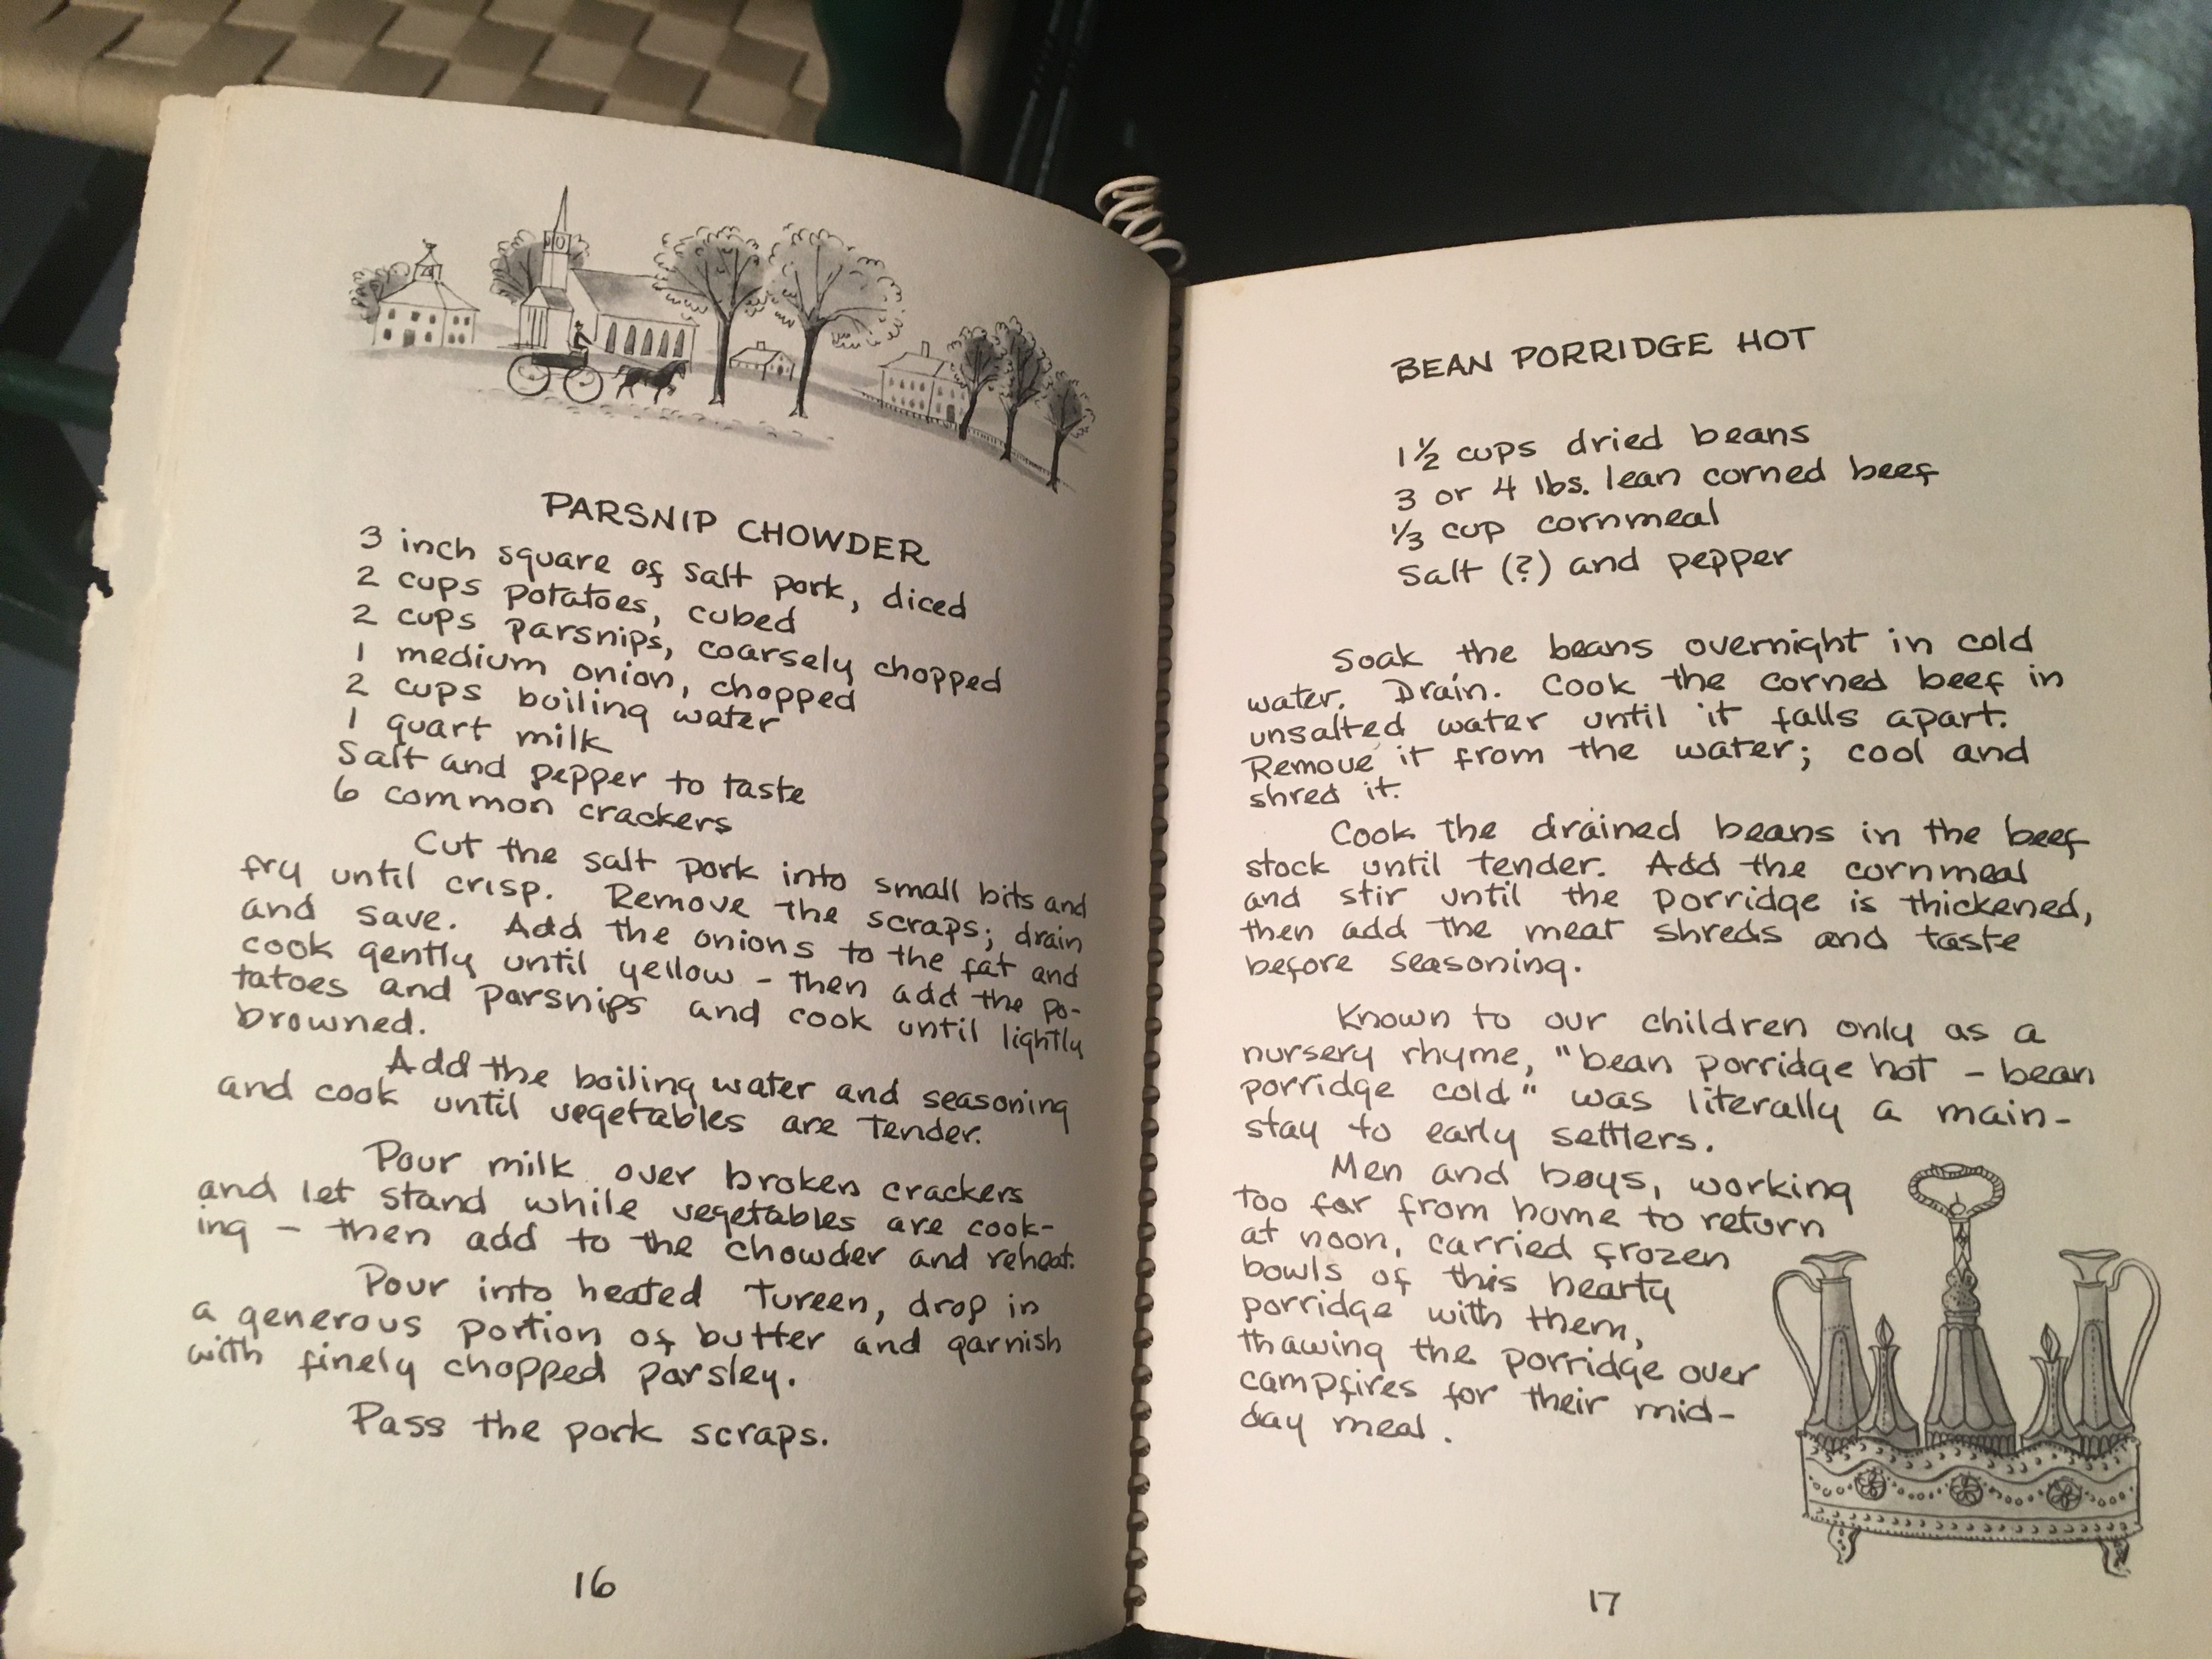 PARSNIP CHOWDER
3 inch square of salt pork, diced
2 cups potatoes, cubed
2 cups parsnips, coarsely chopped
1 medium onion, chopped
2 cups boiling water
1 quart milk
Salt and pepper to taste
6 common crackers
Cut the salt pork into small bits and
fry until crisp. Remove the scraps; drain
and save. Add the onions to the fat and
cook gently until yellow - then add the po-
tatoes and parsnips and cook until lightly
browned.
Add the boiling water and seasoning
and cook until vegetables are tender.
Pour milk over broken crackers
and let stand while vegetables are cook-
ing - then add to the chowder and reheat.
Pour into heated tureen, drop in
a generous portion of butter and garnish
with finely chopped parsley.
Pass the pork scraps.
16
BEAN PORRIDGE HOT
1 ½ cups dried beans
3 or 4 lbs. lean corned beef
⅓ cup cornmeal
Salt (?) and pepper
Soak the beans overnight in cold
water. Drain. Cook the corned beef in
unsalted water until it falls apart.
Remove it from the water; cool and
shred it.
Cook the drained beans in the beef
stock until tender. Add the cornmeal
and stir until the porridge is thickened,
then add the meat shreds and taste
before seasoning.
Known to our children only as a
nursery rhyme, "bean porridge hot - bean
porridge cold" was literally a main-
stay to early settlers.
Men and boys, working
too far from home to return
at noon, carried frozen
bowls of this hearty
porridge with them,
thawing the porridge over
campfires for their mid-
day meal.
17